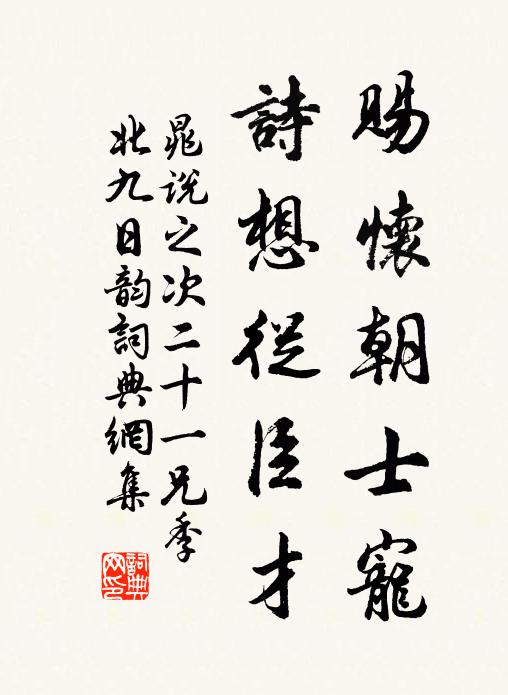 賜懷朝士寵
詩想從臣才
晁說之次二十一兄季
此九日韵詞典網集
詞典网印